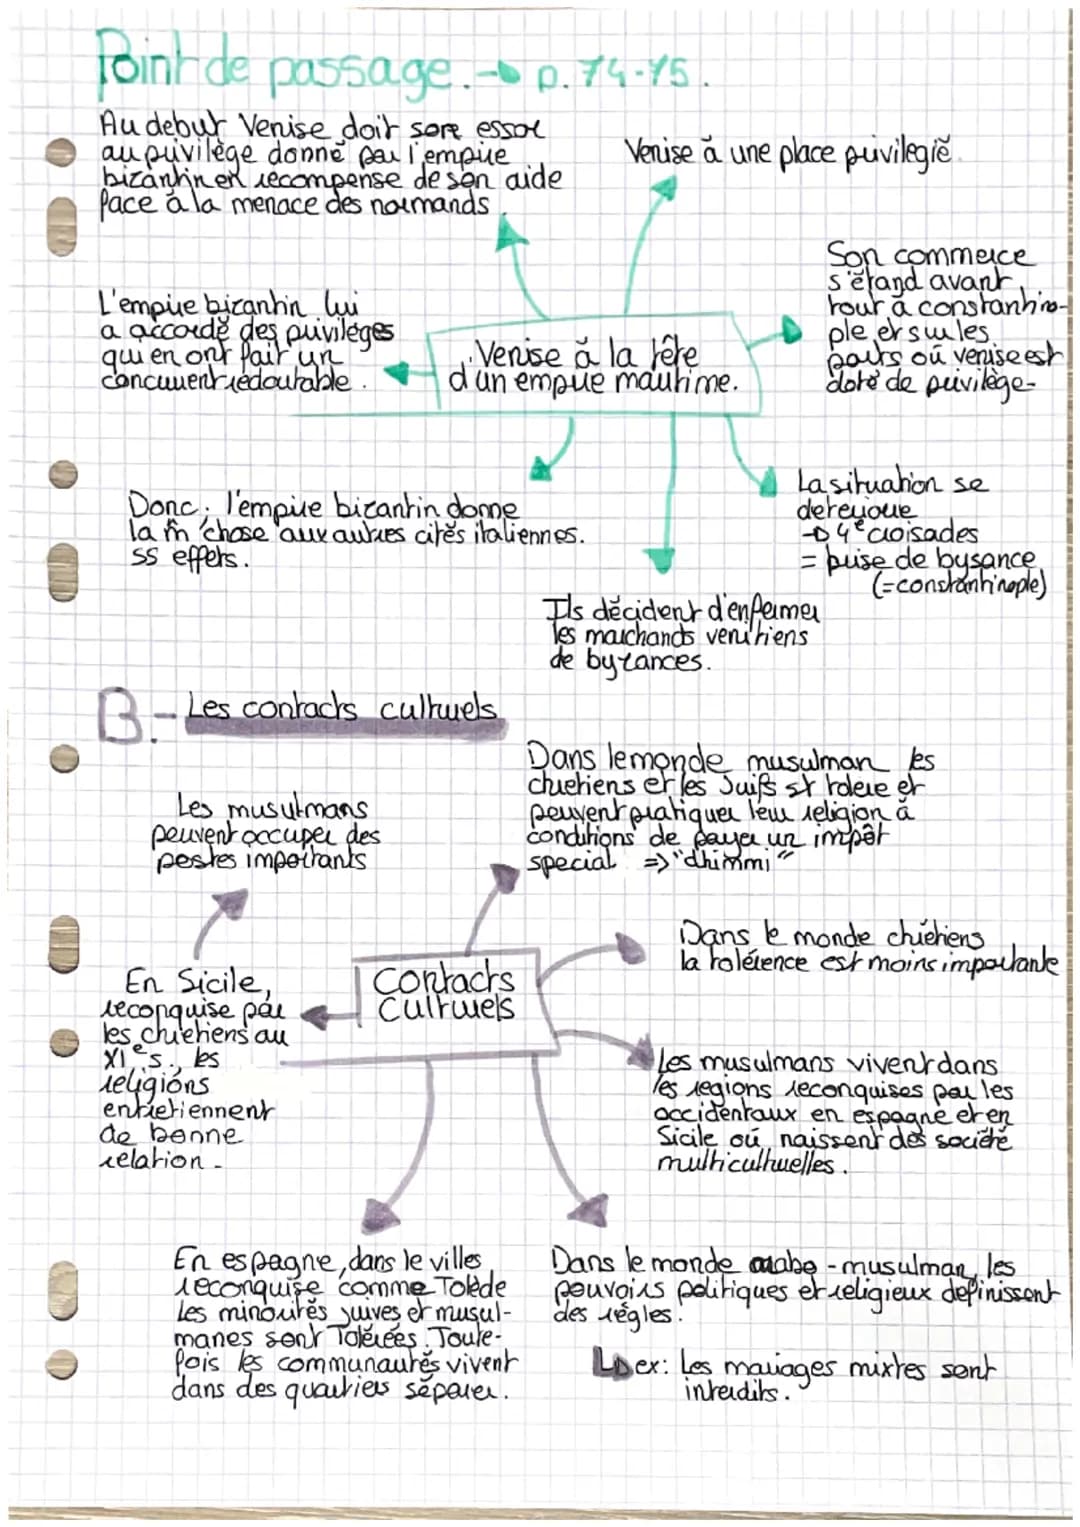 Point de passage. → p. 74-75.
Au debut Venise doit sore essor
au privilège donné par l'empire
bizantin en recompense de son aide
face à la menace des normands.
Venise à une place privilegié.
Son commerce
s'étand avant
tout à constantino-
ple et sur les
ports où venise est
doté de privilège.
L'empire bizantin lui
a accordé des privilèges
qui en ont fait un
concurrent redoutable.
Venise à la tête
d'un empire maritime.
Donc, l'empire bizantin donne
la m̂ chose aux autres cités italiennes.
ss effets.
La situation se
deteriore
→ 4e croisades
= prise de bysance
(=constantinople)
Ils décident d'enfermer
les marchands venitiens
de byzances.
B.- Les contacts culturels
Dans le monde musulman les
chretiens et les Juifs st tolere et
peuvent pratiquer leur religion à
conditions de payer un impôt
special => "dhimmi"
Les musulmans
peuvent occuper des
postes importants
Dans le monde chrétiens
la tolérence est moins importante
En Sicile,
reconquise par
les chretiens au
XIe s., les
religions
entretiennent
de bonne
relation.
Contacts
Culturels
Les musulmans vivent dans
les regions reconquises par les
occidentaux en espagne et en
Sicile où naissent des société
multiculturelles.
En espagne, dans le villes
reconquise comme Tolède
les minorités juives et musul-
manes sont Tolérées. Toute-
fois les communautés vivent
dans des quartiers séparer.
Dans le monde arabo-musulman, les
pouvoirs politiques et religieux definissent
des règles.
↳ ex: Les mariages mixtes sont
interdits.